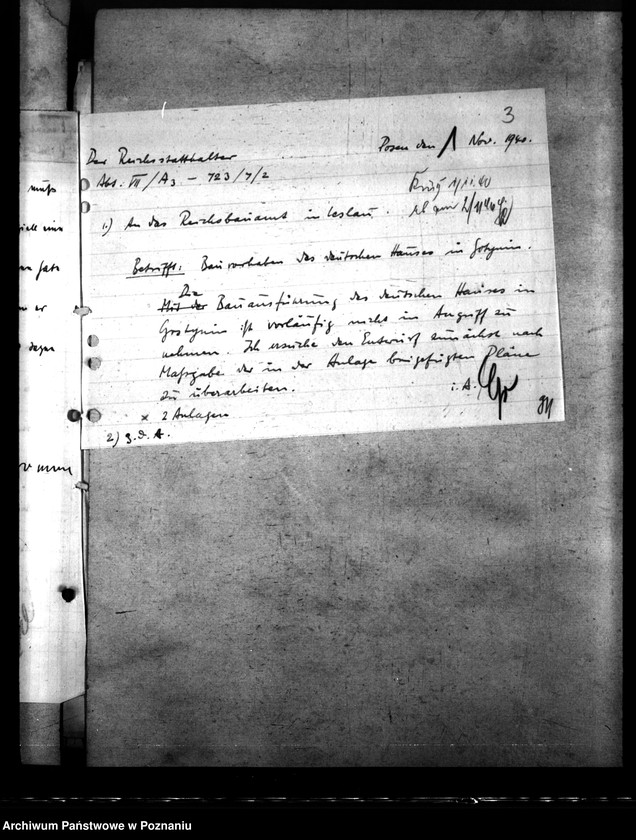 3
Der Reichsstatthalter
Posen den 1 Nov. 1940.
Abt. VII/A3 - 723/7/2
1/11.40
2/11.40
1.) An das Reichsbauamt in Leslau.
Betrifft: Bauvorhaben des deutschen Hauses in Gostynin.
Die
Mit der Bauausführung des deutschen Hauses in
Gostynin ist vorläufig nicht in Angriff zu
nehmen. Ich ersuche den Entwurf zunächst nach
Maßgabe der in der Anlage beigefügten Pläne
zu überarbeiten.
i. A.
x 2 Anlagen
2) z. d. A.
muß
er
Archiwum Państwowe w Poznaniu